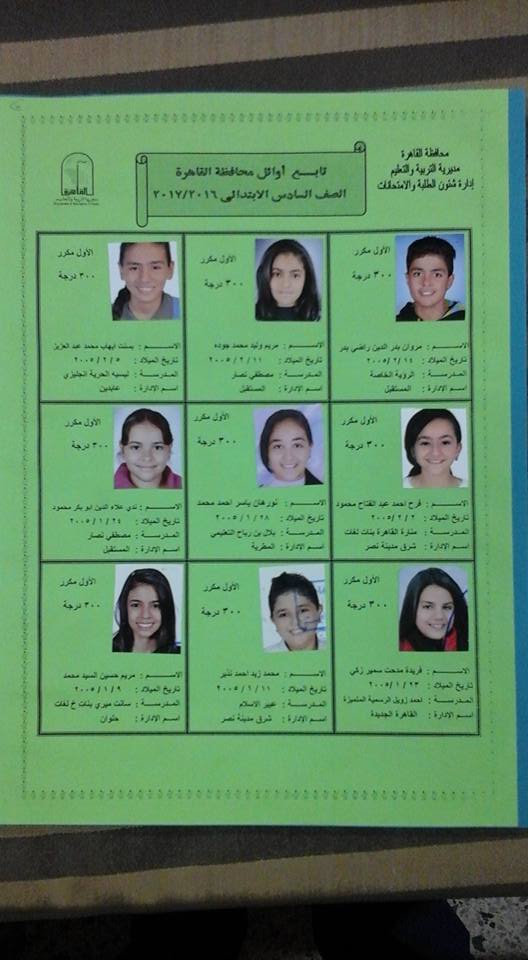 محافظة القاهرة
مديرية التربية والتعليم
إدارة شئون الطلبة والامتحانات
تابع أوائل محافظة القاهرة
الصف السادس الابتدائى ٢٠١٧/٢٠١٦
القاهرة
الأول مكرر
٣٠٠ درجة
الاسم : مروان بدر الدين راضي بدر
تاريخ الميلاد : ٢٠٠٥/٢/١٤
المدرسة : الرؤية الخاصة
اسم الإدارة : المستقبل
الأول مكرر
٣٠٠ درجة
الاسم : مريم وليد محمد جوده
تاريخ الميلاد : ٢٠٠٥/٢/١١
المدرسة : مصطفي نصار
اسم الإدارة : المستقبل
الأول مكرر
٣٠٠ درجة
الاسم : بسنت ايهاب محمد عبد العزيز
تاريخ الميلاد : ٢٠٠٥/٢/٥
المدرسة : ليسيه الحرية انجليزي
اسم الإدارة : عابدين
الأول مكرر
٣٠٠ درجة
الاسم : فرح احمد عبد الفتاح محمود
تاريخ الميلاد : ٢٠٠٥/٢/٢
المدرسة : منارة القاهرة بنات لغات
اسم الإدارة : شرق مدينة نصر
الأول مكرر
٣٠٠ درجة
الاسم : نورهان ياسر احمد محمد
تاريخ الميلاد : ٢٠٠٥/١/٢٨
المدرسة : بلال بن رباح التعليمي
اسم الإدارة : المطرية
الأول مكرر
٣٠٠ درجة
الاسم : ندي علاء الدين ابو بكر محمود
تاريخ الميلاد : ٢٠٠٥/١/٢٤
المدرسة : مصطفي نصار
اسم الإدارة : المستقبل
الأول مكرر
٣٠٠ درجة
الاسم : فريدة مدحت سمير زكي
تاريخ الميلاد : ٢٠٠٥/١/٢٣
المدرسة : احمد زويل الرسمية المتميزة
اسم الإدارة : القاهرة الجديدة
الأول مكرر
٣٠٠ درجة
الاسم : محمد زيد احمد نذير
تاريخ الميلاد : ٢٠٠٥/١/١١
المدرسة : عبير الاسلام
اسم الإدارة : شرق مدينة نصر
الأول مكرر
٣٠٠ درجة
الاسم : مريم حسين السيد محمد
تاريخ الميلاد : ٢٠٠٥/١/٩
المدرسة : سانت ميري بنات خ لغات
اسم الإدارة : حلوان